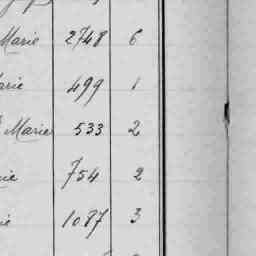 Marie 2748 6
arie 499 1
Marie 533 2
ie 754 2
ie 1087 3